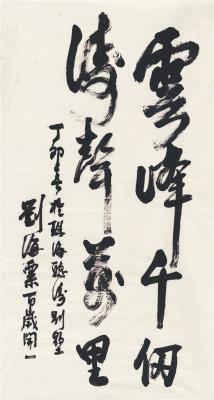 雲峰千仞
濤聲萬里
丁卯春於珠海聽濤別墅
劉海粟百歲開一